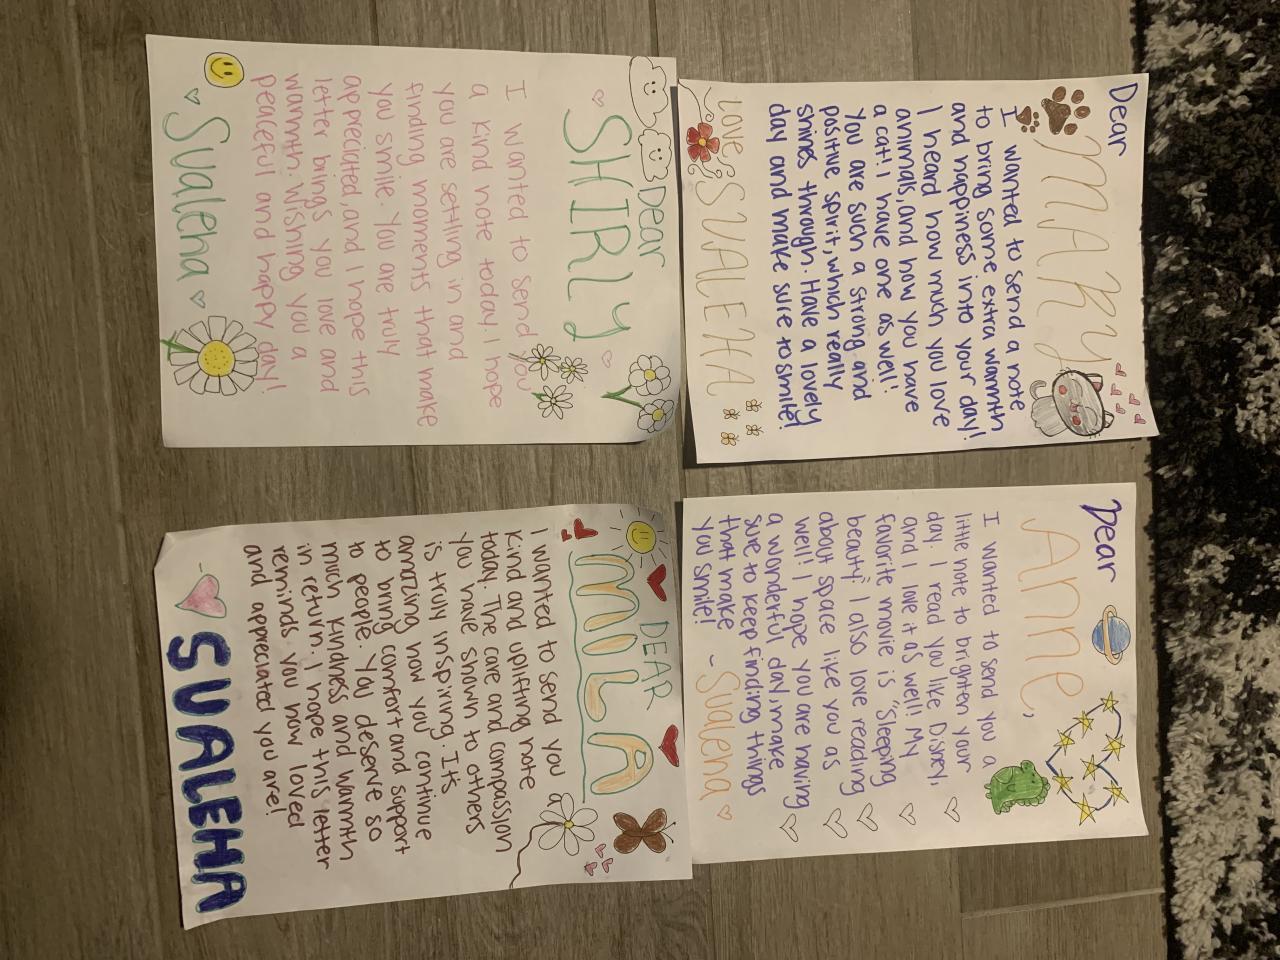 Dear
MARY
I wanted to send a note
to bring some extra warmth
and happiness into your day!
I heard how much you love
animals, and how you have
a cat! I have one as well!
You are such a strong and
positive spirit, which really
shines through. Have a lovely
day and make sure to smile!
Love,
SUALEHA
Dear
Anne,
I wanted to send you a
little note to brighten your
day. I read you like Disney,
and I love it as well! My
favorite movie is "Sleeping
beauty." I also love reading
about space like you as
well! I hope you are having
a wonderful day, make
sure to keep finding things
that make
you smile!
~ Sualeha
Dear
SHIRLY
I wanted to send you
a kind note today. I hope
you are settling in and
finding moments that make
you smile. You are truly
appreciated, and I hope this
letter brings you love and
warmth. Wishing you a
peaceful and happy day!
Sualeha
DEAR
MILA
I wanted to send you a
kind and uplifting note
today. The care and compassion
you have shown to others
is truly inspiring. It's
amazing how you continue
to bring comfort and support
to people. You deserve so
much kindness and warmth
in return. I hope this letter
reminds you how loved
and appreciated you are!
SUALEHA